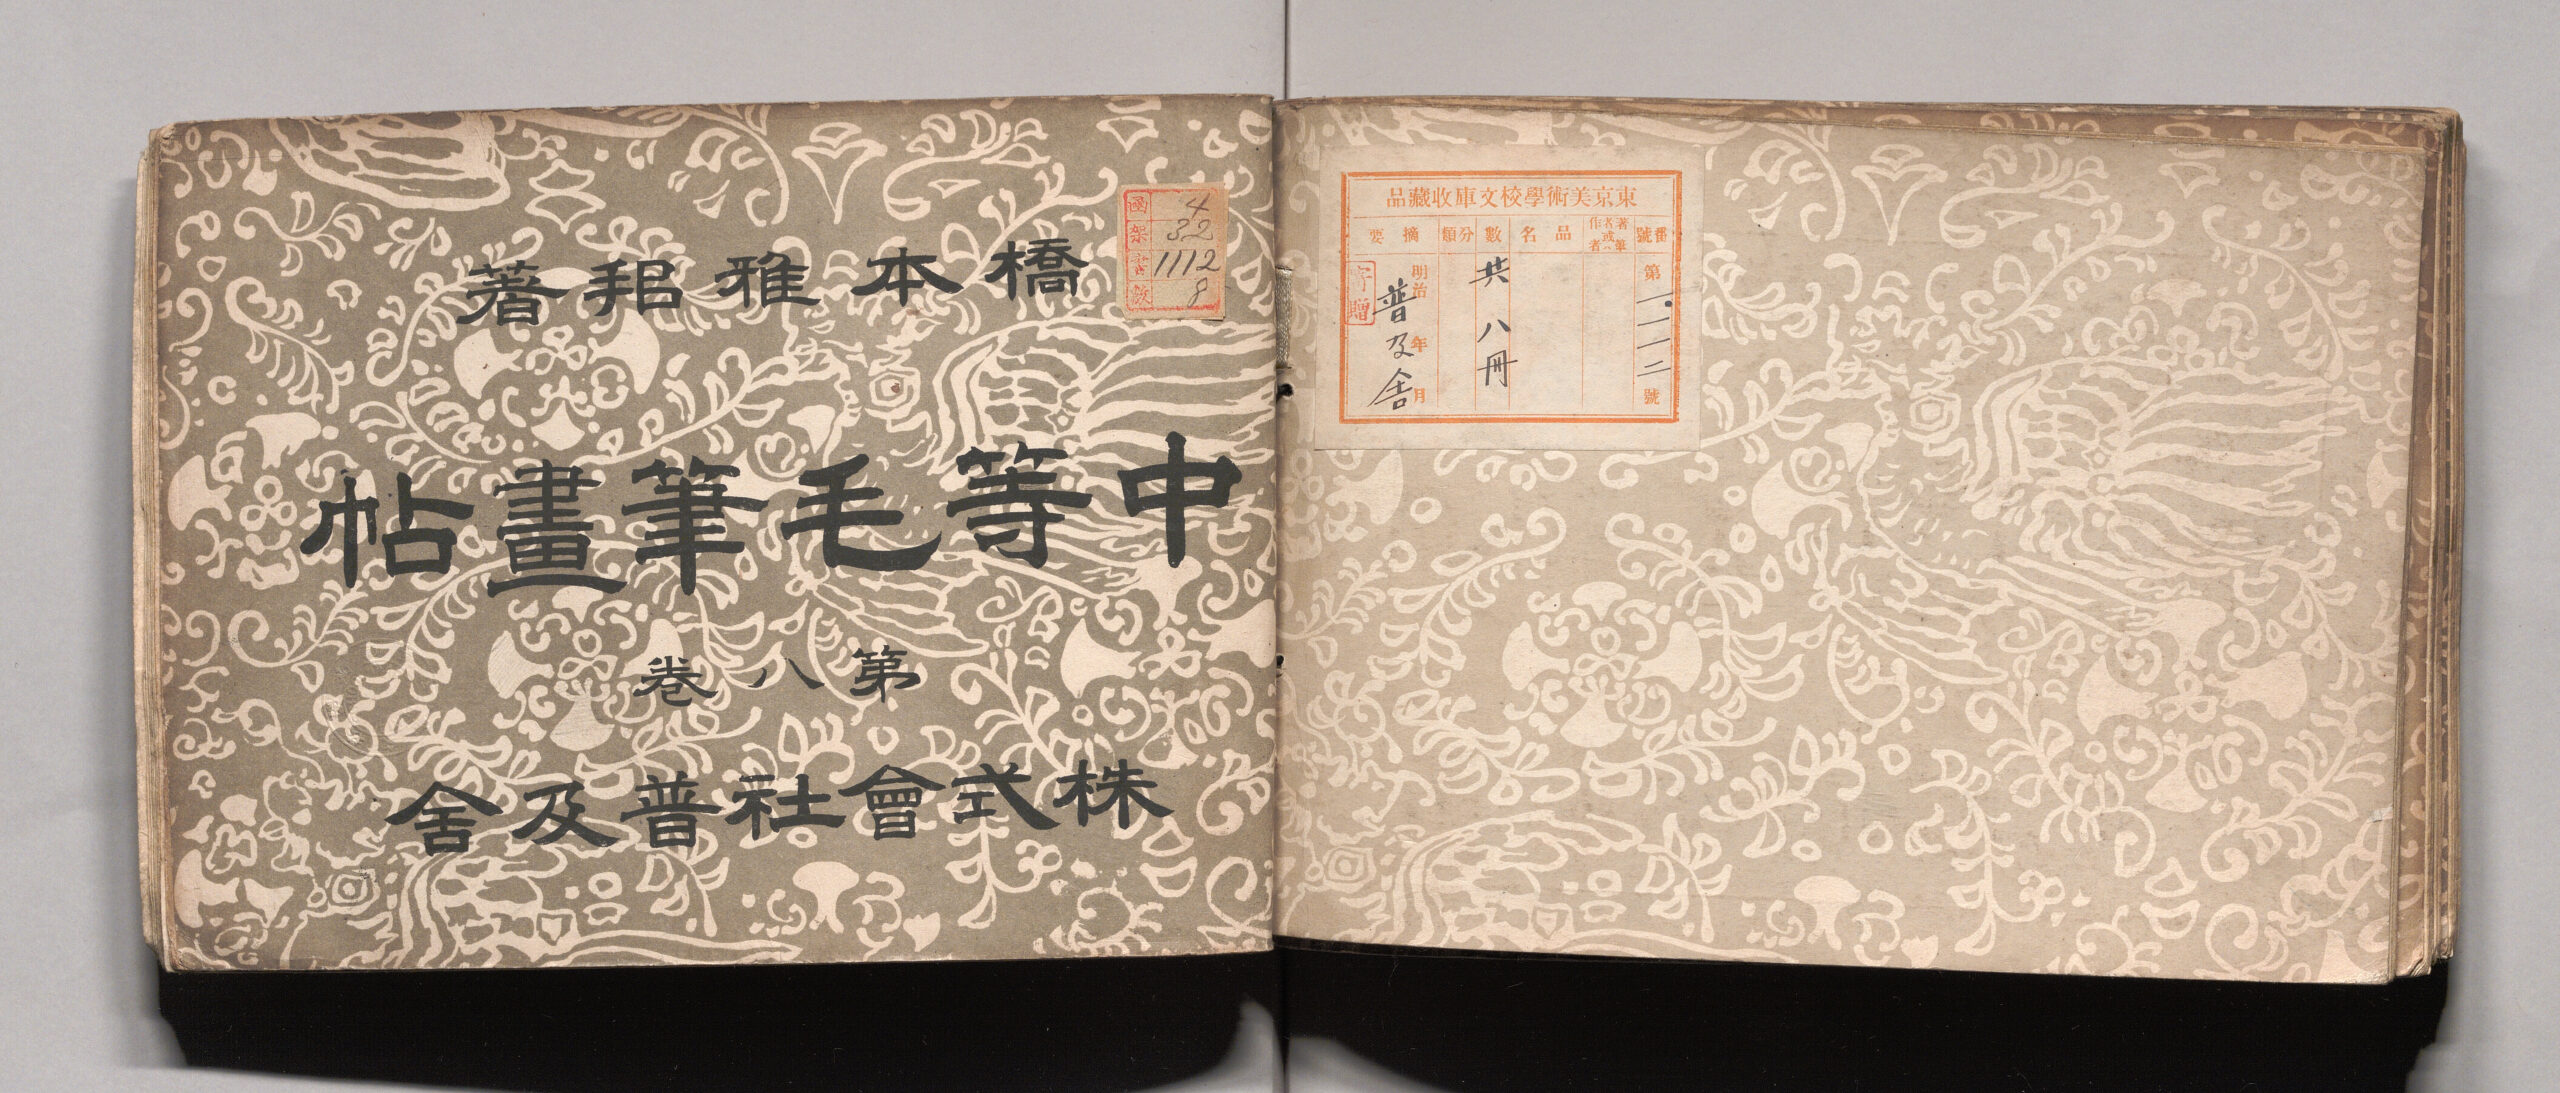 橋本雅邦著
中等毛筆畫帖
第八巻
株式會社普及舍
函 4
架 32
書 1112
數 8
東京美術學校文庫收藏品
番號
著者或ハ筆作者
品名
數
分類
摘要
第一・一一二號
共八冊
明治 年 月
普及舍
寄贈